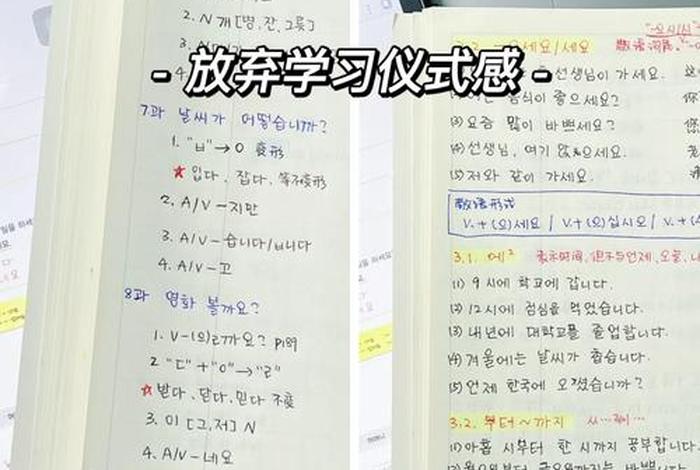 - 放弃学习仪式感 -
2. N 개 [병, 잔, 그릇]
3.
4
7과 날씨가 어떻습니까?
1. "ㅂ" → 오 变形
★ 입다, 잡다, 等不变形
2. A/V - 지만
3. A/V - 습니다/ㅂ니다
4. A/V - 고
8과 영화 볼까요?
1. V-(으)ㄹ까요? P189
2 "ㄷ"+"으"→"ㄹ"
★ 받다, 닫다, 믿다 不变
3. 이 [그, 저] N
4. A/V - 네요
"-으시/시"
세요/세요
敬语词尾
선생님이 가세요.
음식이 좋으세요?
(3) 요즘 많이 바쁘세요?
(4) 선생님, 여기 앉으세요.
(5) 저와 같이 가세요.
敬语形式
V.+(으)세요 / V.+(으)십시오 / V.+(
3.1. 에² 表示时间,但不与언제,오늘,
(1) 9시에 학교에 갑니다.
(2) 12시에 점심을 먹었습니다.
(3) 내년에 대학교를 졸업합니다.
(4) 겨울에는 날씨가 춥습니다.
(5) 언제 한국에 오셨습니까?
3.2. 부터~까지 从…到…
(1) 아홉 시부터 한 시까지 공부합니다.